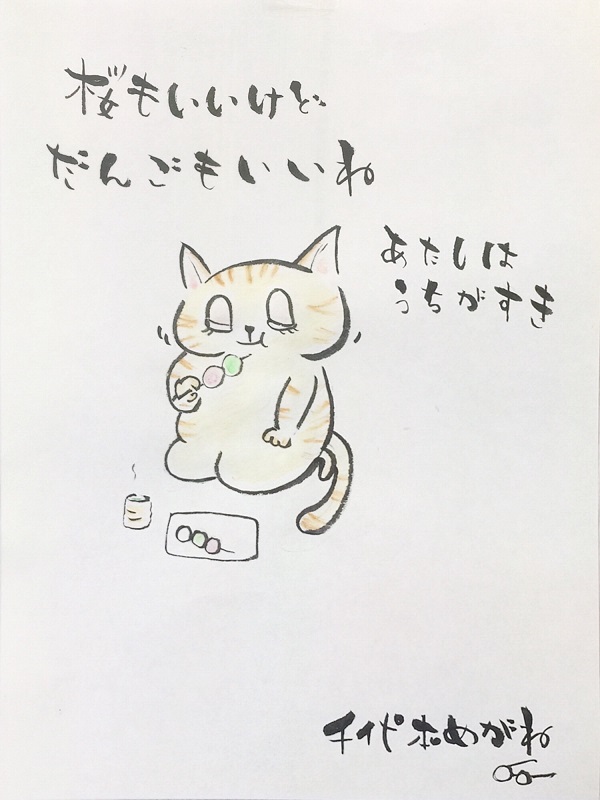 桜もいいけど
だんごもいいね
あたしは
うちがすき
千代木めがね